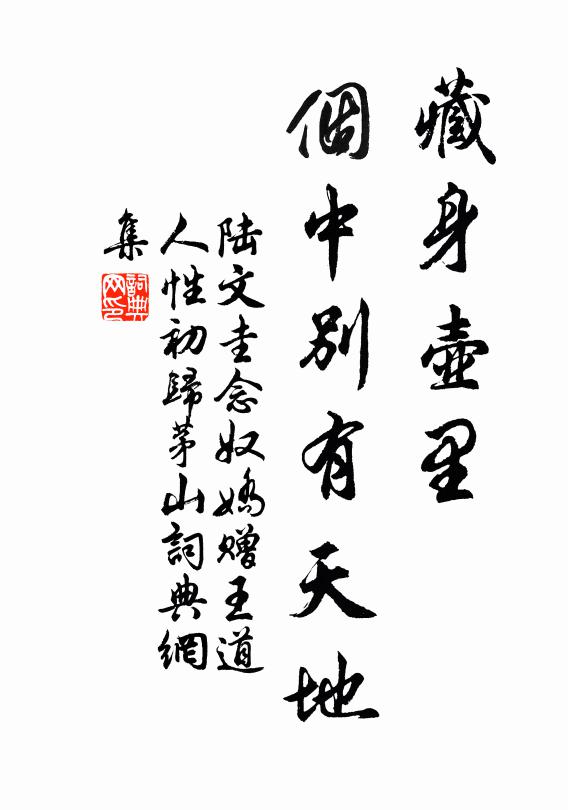 藏身壺里
個中別有天地
陆文圭念奴嬌贈王道
人性初歸茅山詞典網
集
詞典
网印